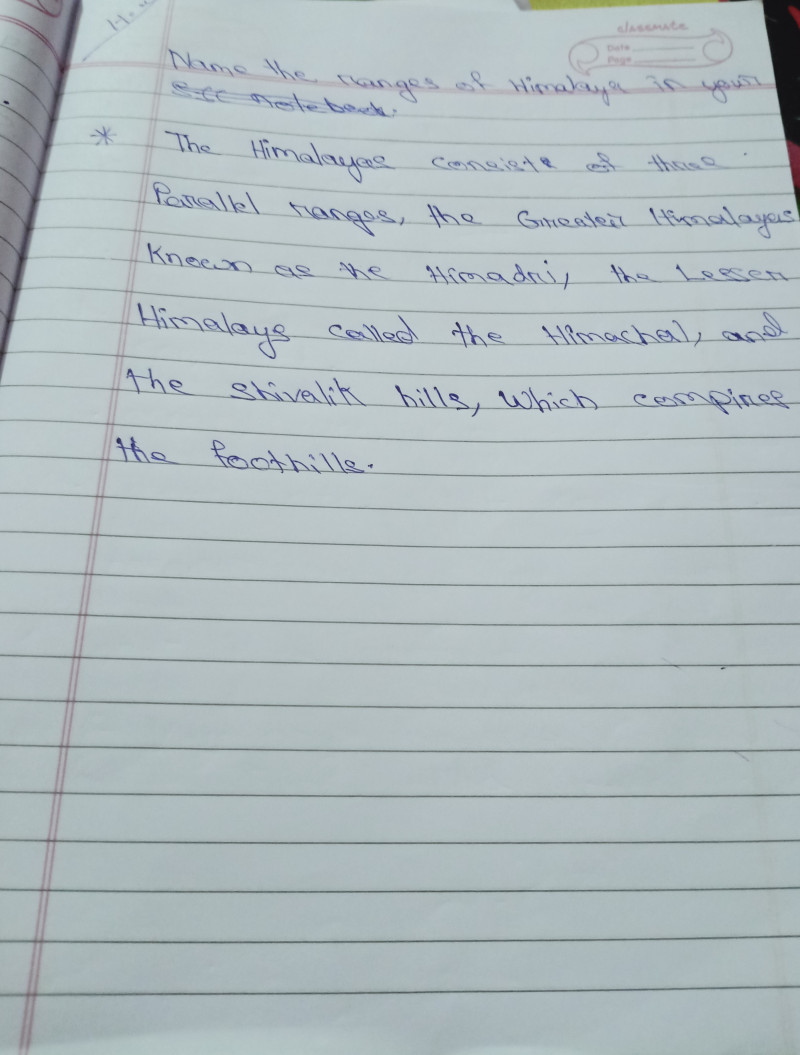 H.W
classmate
Date
Page
Name the ranges of Himalaya in your
notebook.
* The Himalayas consists of three
Parallel ranges, the Greater Himalayas
Known as the Himadri, the Lesser
Himalays called the Himachal, and
the Shivalik hills, Which compines
the foothills.